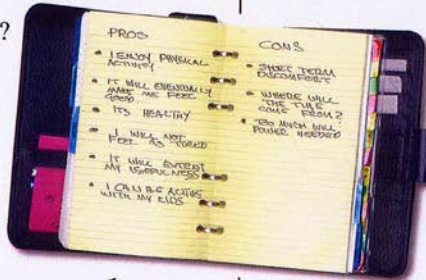 ?
PROS
• I ENJOY PHYSICAL
ACTIVITY
• IT WILL EVENTUALLY
MAKE ME FEEL
GOOD
• ITS HEALTHY
• I WILL NOT
FEEL AS TIRED
• IT WILL EXTENT
MY USEFULNESS
• I CAN BE ACTIVE
WITH MY KIDS
CONS
• SHORT TERM
DISCOMFORT
• WHERE WILL
THE TIME
COME FROM?
• TOO MUCH WILL
POWER NEEDED